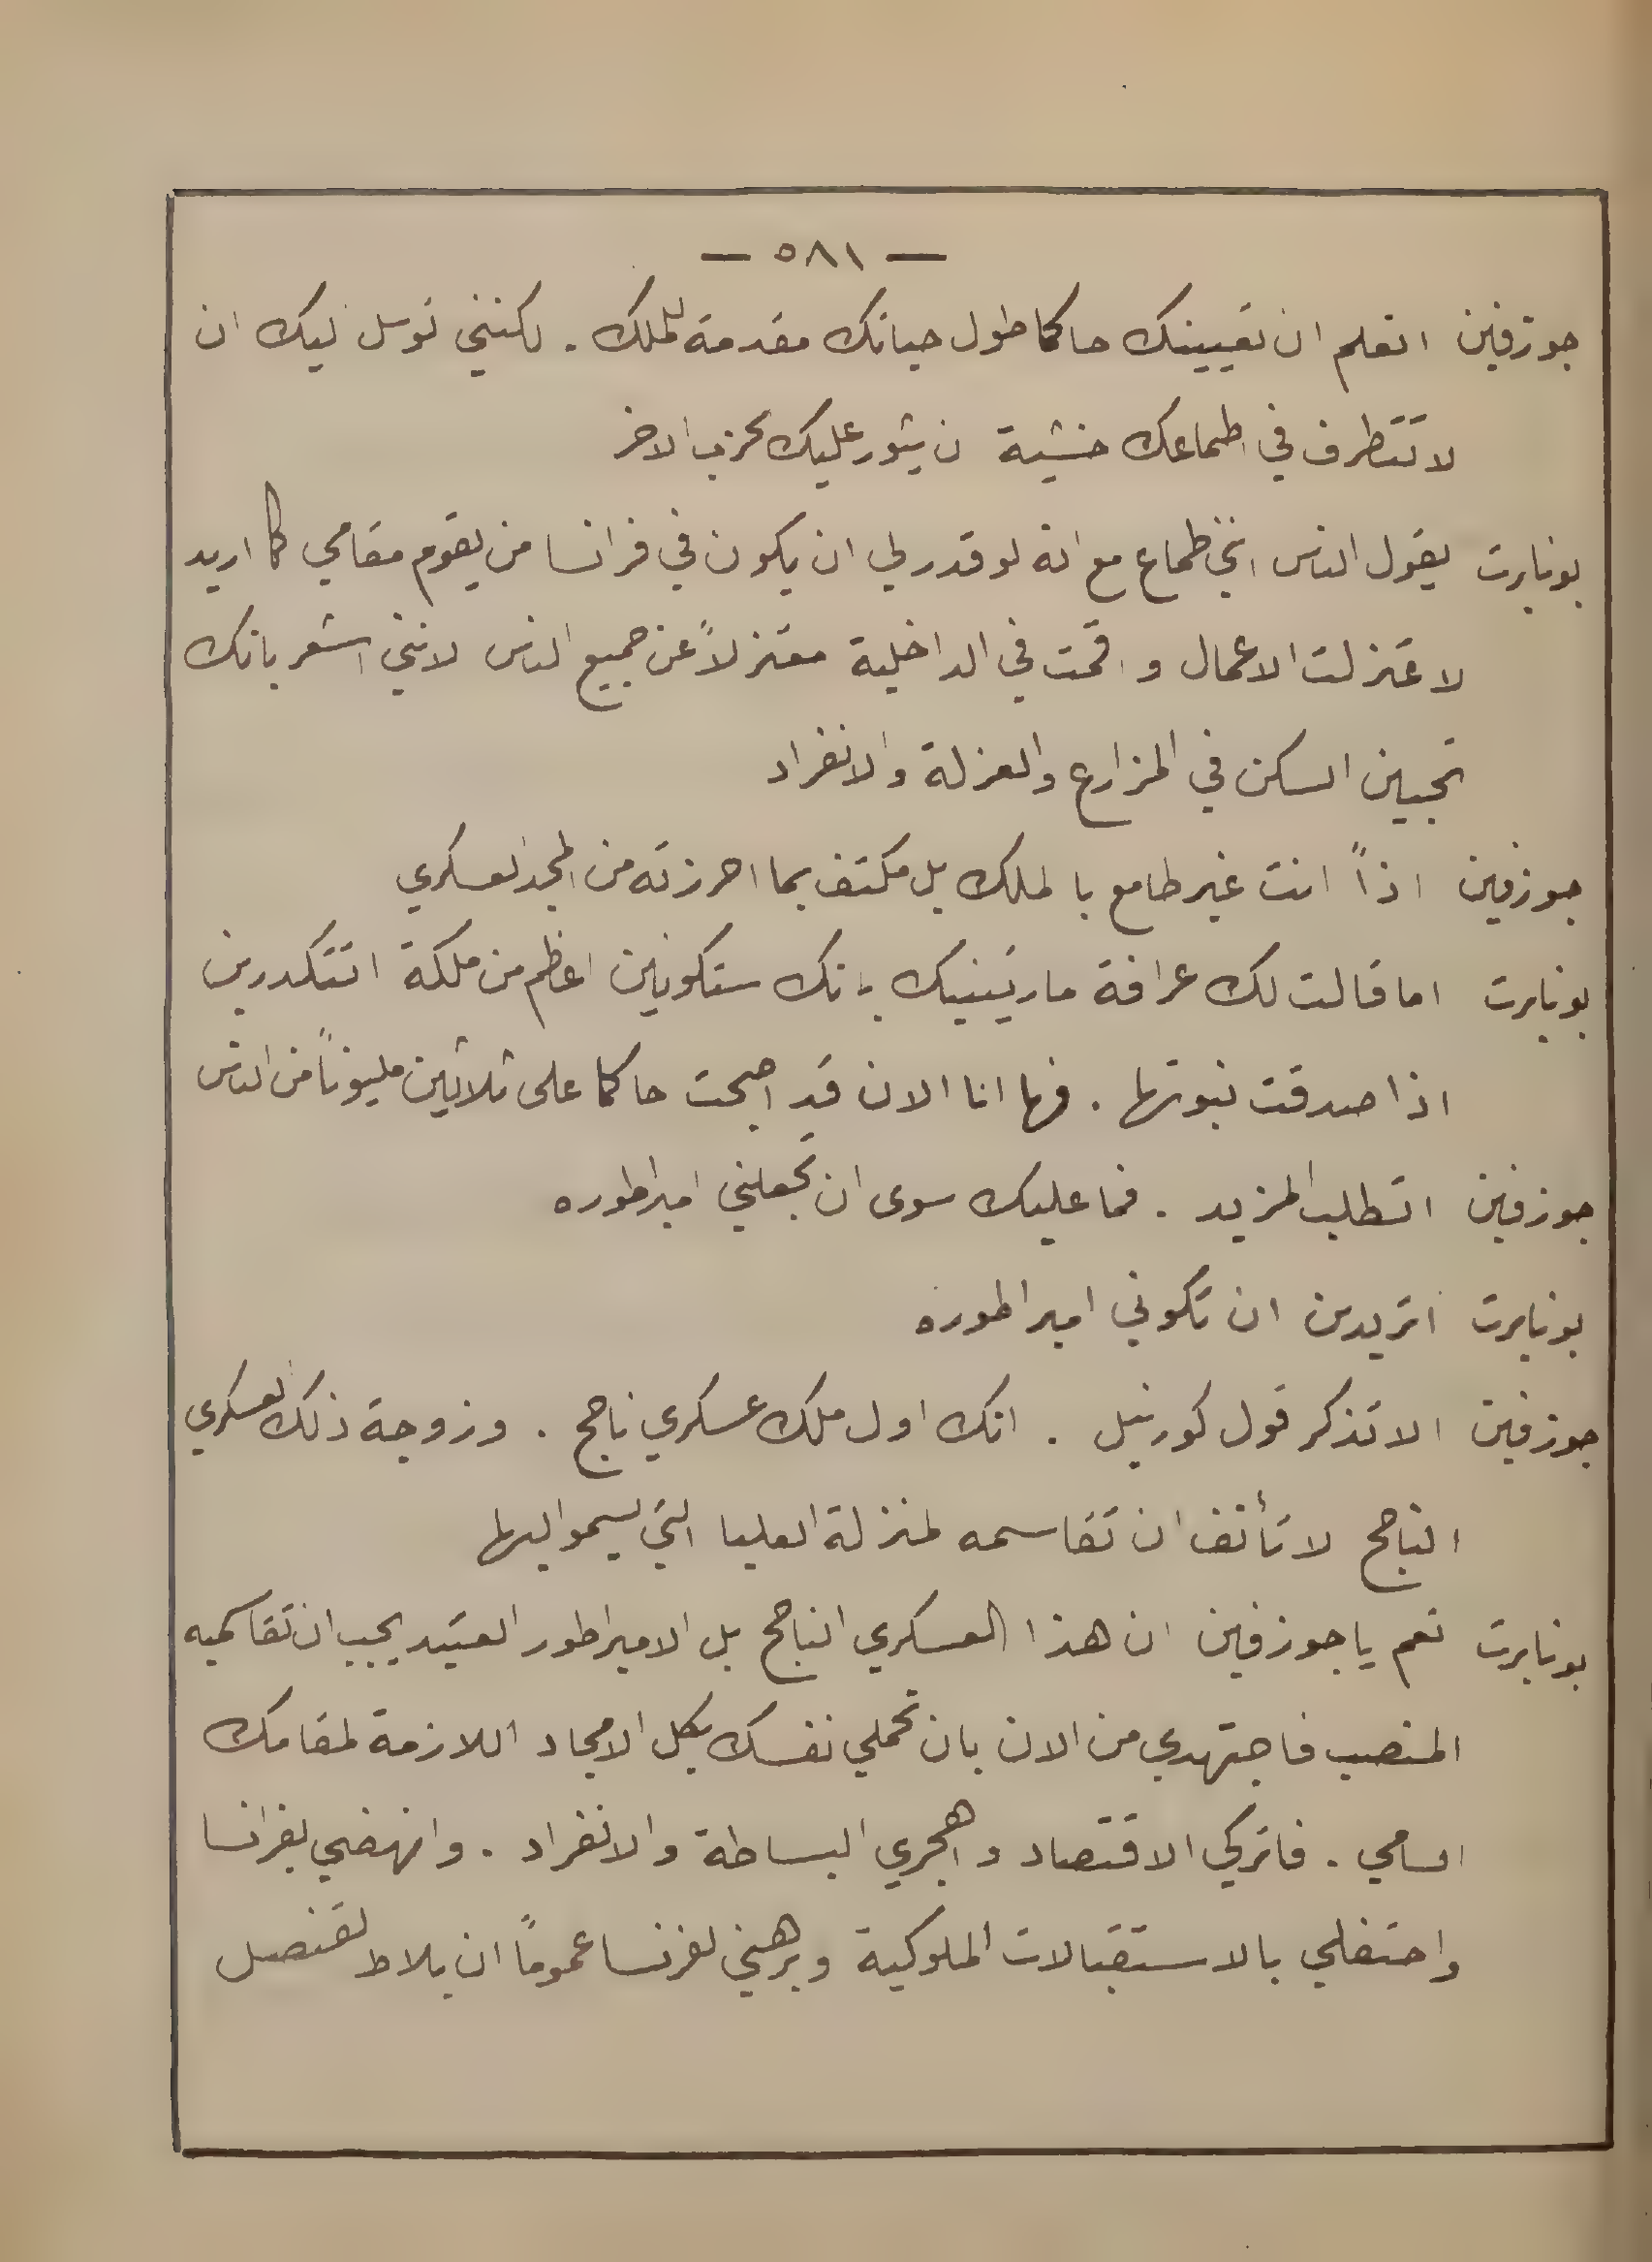 — ٥٨١ —
جوزفين اتعلم ان تعيينك حاكما طول حياتك مقدمة للملك . لكنني توسل ليك ان
لا تتطرف في اطماعك خشية ن يثور عليك لحزب الاخر
بونابرت يقول الناس انني طماع مع انه لو قدر لي ان يكون في فرانسا من يقوم مقامي كما اريد
لاعتزلت الاعمال واقمت في الداخلية معتزلاً عن جميع الناس لانني اشعر بانك
تحبين السكن في المزارع والعزلة والانفراد
جوزفين اذاً انت غير طامع بالملك بل مكتف بما احرزته من المجد العسكري
بونابرت اما قالت لك عرافة مارتينيك بانك ستكونين اعظم من ملكة اتتكدرين
اذا صدقت نبوتها . فها انا الان قد اصبحت حاكما على ثلاثين مليوناً من الناس
جوزفين اتطلب المزيد . فما عليك سوى ان تجعلني امبراطوره
بونابرت اتريدين ان تكوني امبراطوره
جوزفين الا تذكر قول كورنيل . انك اول ملك عسكري ناجح . وزوجة ذلك لعسكري
الناجح لا تأنف ان تقاسمه لمنزلة العليا التي يسمو اليها
بونابرت نعم يا جوزفين ان هذا العسكري الناجح بل الامبراطور العتيد يجب ان تقاسميه
المنصب فاجتهدي من الان بان تحملي نفسك بكل الامجاد اللازمة لمقامك
السامي . فاتركي الاقتصاد واهجري البساطة والانفراد . وانهضي بفرانسا
واحتفلي بالاستقبالات الملوكية وبرهني لفرنسا عموماً ان بلاط لقنصل